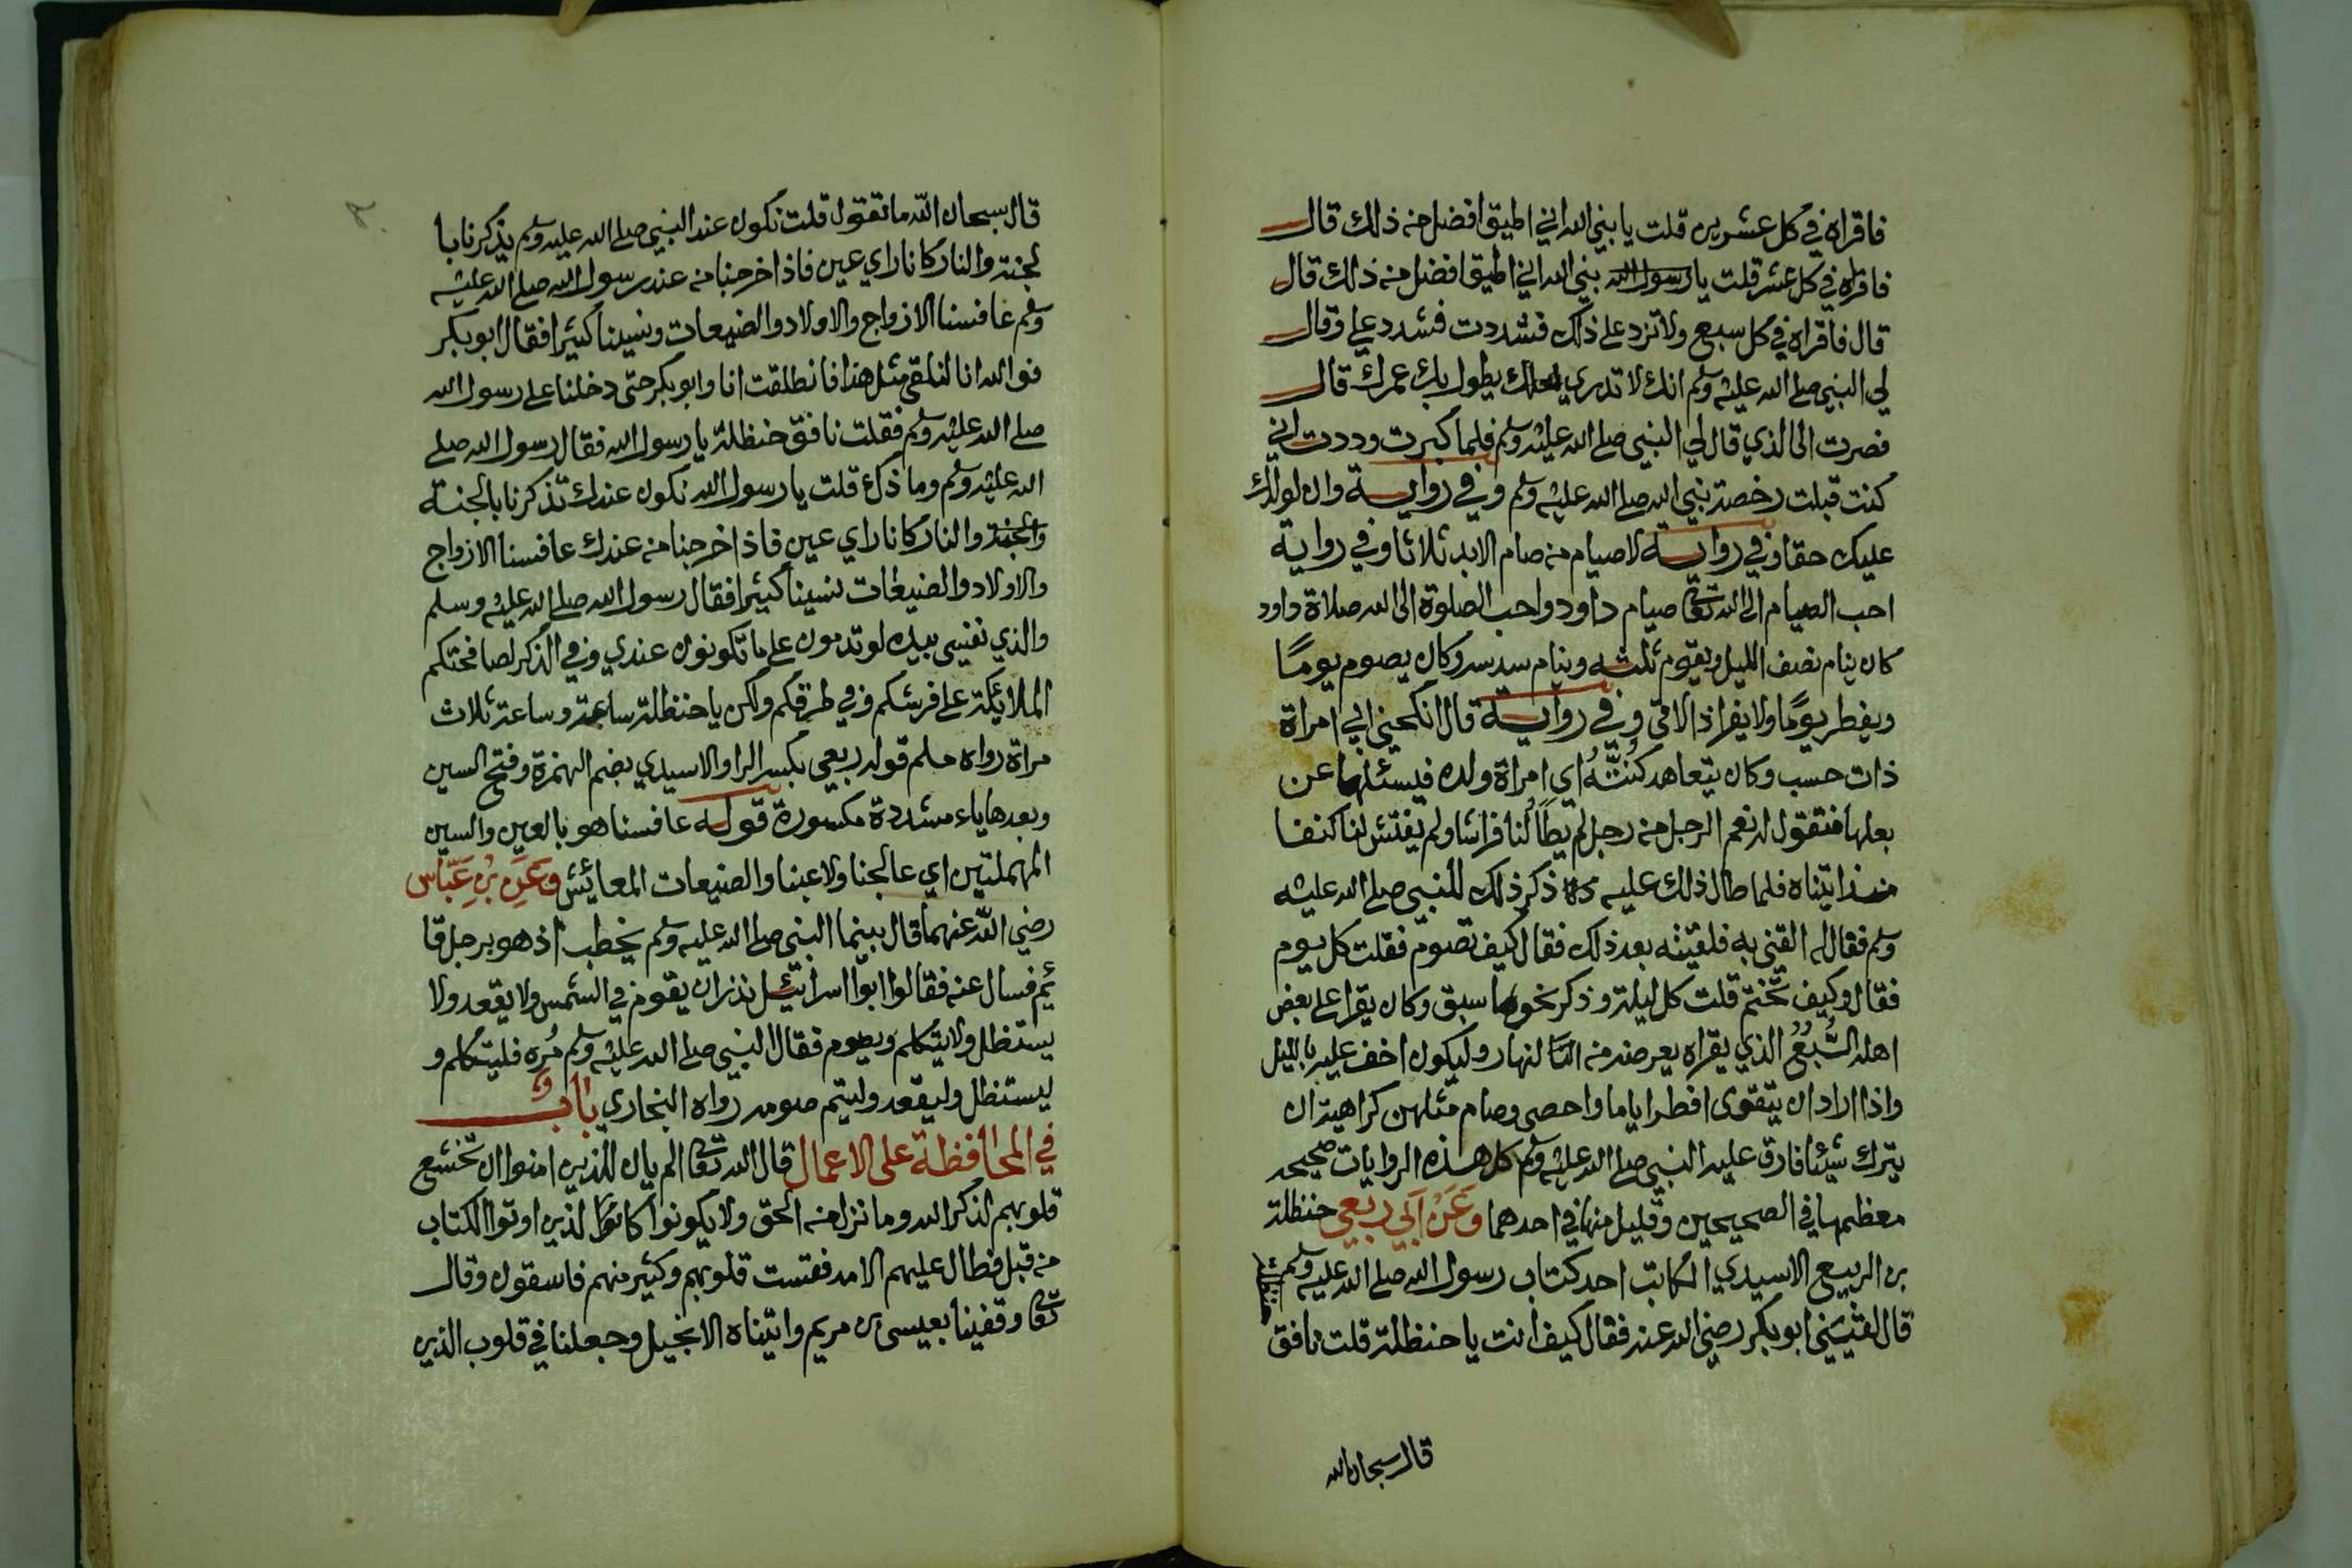 فاقراه في كل عشرين قلت يا نبي الله اني اطيق افضل من ذلك قال
فاقراه في كل عشر قلت يا رسول الله نبي الله اني اطيق افضل من ذلك قال
قال فاقراه في كل سبع ولا تزد على ذلك فشددت فشدد علي وقال
لي النبي صلى الله عليه وسلم انك لا تدري لعلك يطول بك عمرك قال
فصرت الى الذي قال لي النبي صلى الله عليه وسلم فلما كبرت وددت اني
كنت قبلت رخصة نبي الله صلى الله عليه وسلم وفي رواية وان لولدك
عليك حقا وفي رواية لا صيام من صام الابد ثلاثا وفي رواية
احب الصيام الى الله تعالى صيام داود واحب الصلوة الى الله صلاة داود
كان ينام نصف الليل ويقوم ثلثه وينام سدسه وكان يصوم يومًا
ويفطر يومًا ولا يفر اذا لاقى وفي رواية قال انكحني ابي امراة
ذات حسب وكان يتعاهد كَنَّتَهُ اي امراة ولده فيسئلها عن
بعلها فتقول له نعم الرجل من رجل لم يطأ لنا فراشا ولم يفتش لنا كنفا
منذ اتيناه فلما طال ذلك عليه ذكر ذلك للنبي صلى الله عليه
وسلم فقال له القني به فلقيته بعد ذلك فقال كيف تصوم فقلت كل يوم
فقال وكيف تختم قلت كل ليلة وذكر نحو ما سبق وكان يقرا على بعض
اهله السُّبُعُ الذي يقراه يعرضه من النهار وليكون اخف عليه بالليل
واذا اراد ان يتقوى افطر اياما واحصى وصام مثلهن كراهية ان
يترك شيئا فارق عليه النبي صلى الله عليه وسلم كل هذه الروايات صحيحة
معظمها في الصحيحين وقليل منها في احدهما وعن ابي ربعي حنظلة
بن الربيع الاسيدي الكاتب احد كتاب رسول الله صلى الله عليه وسلم
قال لقيتني ابو بكر رضي الله عنه فقال كيف انت يا حنظلة قلت نافق
حنظلة
قال سبحان الله
قال سبحان الله ما تقول قلت نكون عند النبي صلى الله عليه وسلم يذكرنا با
لجنة والنار كانا راي عين فاذا خرجنا من عند رسول الله صلى الله عليه
وسلم عافسنا الازواج والاولاد والضيعات ونسينا كثيرا فقال ابو بكر
فو الله انا لنلقى مثل هذا فانطلقت انا وابو بكر حتى دخلنا على رسول الله
صلى الله عليه وسلم فقلت نافق حنظلة يا رسول الله فقال رسول الله صلى
الله عليه وسلم وما ذك قلت يا رسول الله نكون عندك تذكرنا بالجنة
والجنة والنار كانا راي عين فاذا خرجنا من عندك عافسنا الازواج
والاولاد والضيعات نسينا كثيرا فقال رسول الله صلى الله عليه وسلم
والذي نفسي بيده لو تدمون على ما تكونون عندي وفي الذكر لصافحتكم
الملائكة على فرشكم وفي طرقكم ولكن يا حنظلة ساعة وساعة ثلاث
مراة رواه مسلم قوله ربعي بكسر الرا والاسيدي بضم الهمزة وفتح السين
وبعدها ياء مشددة مكسورة قوله عافسنا هو بالعين والسين
المهملتين اي عالجنا ولاعبنا والضيعات المعائش وعن بن عباس
رضي الله عنهما قال بينما النبي صلى الله عليه وسلم يخطب اذ هو برجل قا
ئم فسال عنه فقالوا ابوا اسرائيل نذر ان يقوم في الشمس ولا يقعد ولا
يستظل ولا يتكلم ويصوم فقال النبي صلى الله عليه وسلم مُره فليتكلم و
ليستظل وليقعد وليتم صومه رواه البخاري باب
في المحافظة على الاعمال قال الله تعالى الم يان للذين امنوا ان تخشع
قلوبهم لذكر الله وما نزل من الحق ولا يكونوا كانوا لذين اوتوا الكتاب
من قبل فطال عليهم الامد فقست قلوبهم وكثير منهم فاسقون وقال
تعالى وقفينا بعيسى بن مريم واتيناه الانجيل وجعلنا في قلوب الذين